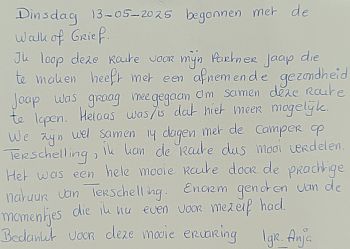 Dinsdag 13-05-2025 begonnen met de
Walk of Grief.
Ik loop deze Route voor mijn Partner Jaap die
te maken heeft met een afnemende gezondheid
Jaap was graag meegegaan om samen deze Route
te lopen. Helaas was/is dat niet meer mogelijk.
We zijn wel samen 14 dagen met de camper op
Terschelling, ik kan de Route dus mooi verdelen.
Het was een hele mooie Route door de prachtige
natuur van Terschelling. Enorm genoten van de
momentjes die ik nu even voor mezelf had.
Bedankt voor deze mooie ervaring lgr. Anja